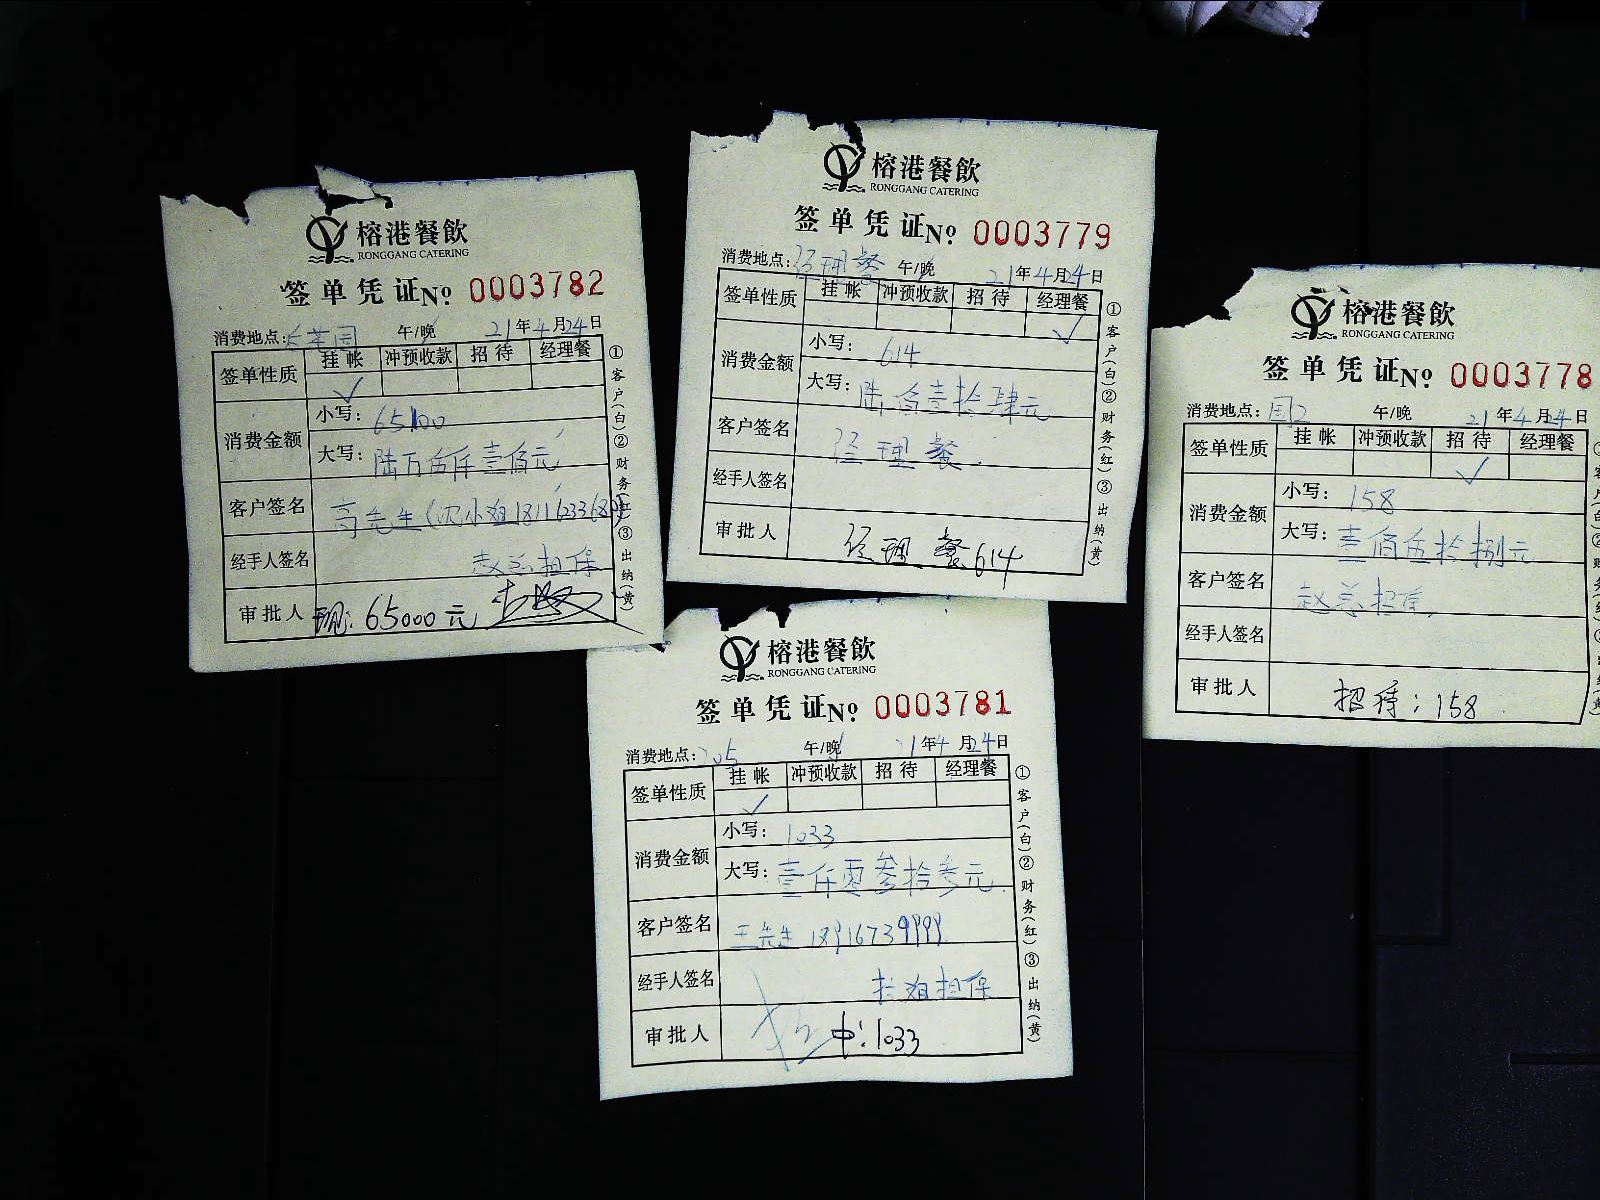 榕港餐飲
RONGGANG CATERING
签单凭证No 0003782
消费地点: 午/晚 21年4月24日
签单性质 挂帐 冲预收款 招待 经理餐
✓
消费金额 小写: 65100
大写: 陆万伍仟壹佰元
客户签名 高先生(沈小姐
经手人签名 赵总担保
审批人 现: 65000元
①客户(白)②财务(红)③出纳(黄)
榕港餐飲
RONGGANG CATERING
签单凭证No 0003779
消费地点: 经理餐 午/晚 21年4月24日
签单性质 挂帐 冲预收款 招待 经理餐
✓
消费金额 小写: 614
大写: 陆佰壹拾肆元
客户签名 经理餐
经手人签名
审批人 经理餐614
①客户(白)②财务(红)③出纳(黄)
榕港餐飲
RONGGANG CATERING
签单凭证No 0003778
消费地点: 国2 午/晚 21年4月24日
签单性质 挂帐 冲预收款 招待 经理餐
✓
消费金额 小写: 158
大写: 壹佰伍拾捌元
客户签名 赵总招待
经手人签名
审批人 招待: 158
榕港餐飲
RONGGANG CATERING
签单凭证No 0003781
消费地点: 205 午/晚 21年4月24日
签单性质 挂帐 冲预收款 招待 经理餐
✓
消费金额 小写: 1033
大写: 壹仟零叁拾叁元
客户签名 王先生 18916739999
经手人签名 担保
审批人 中: 1033
①客户(白)②财务(红)③出纳(黄)